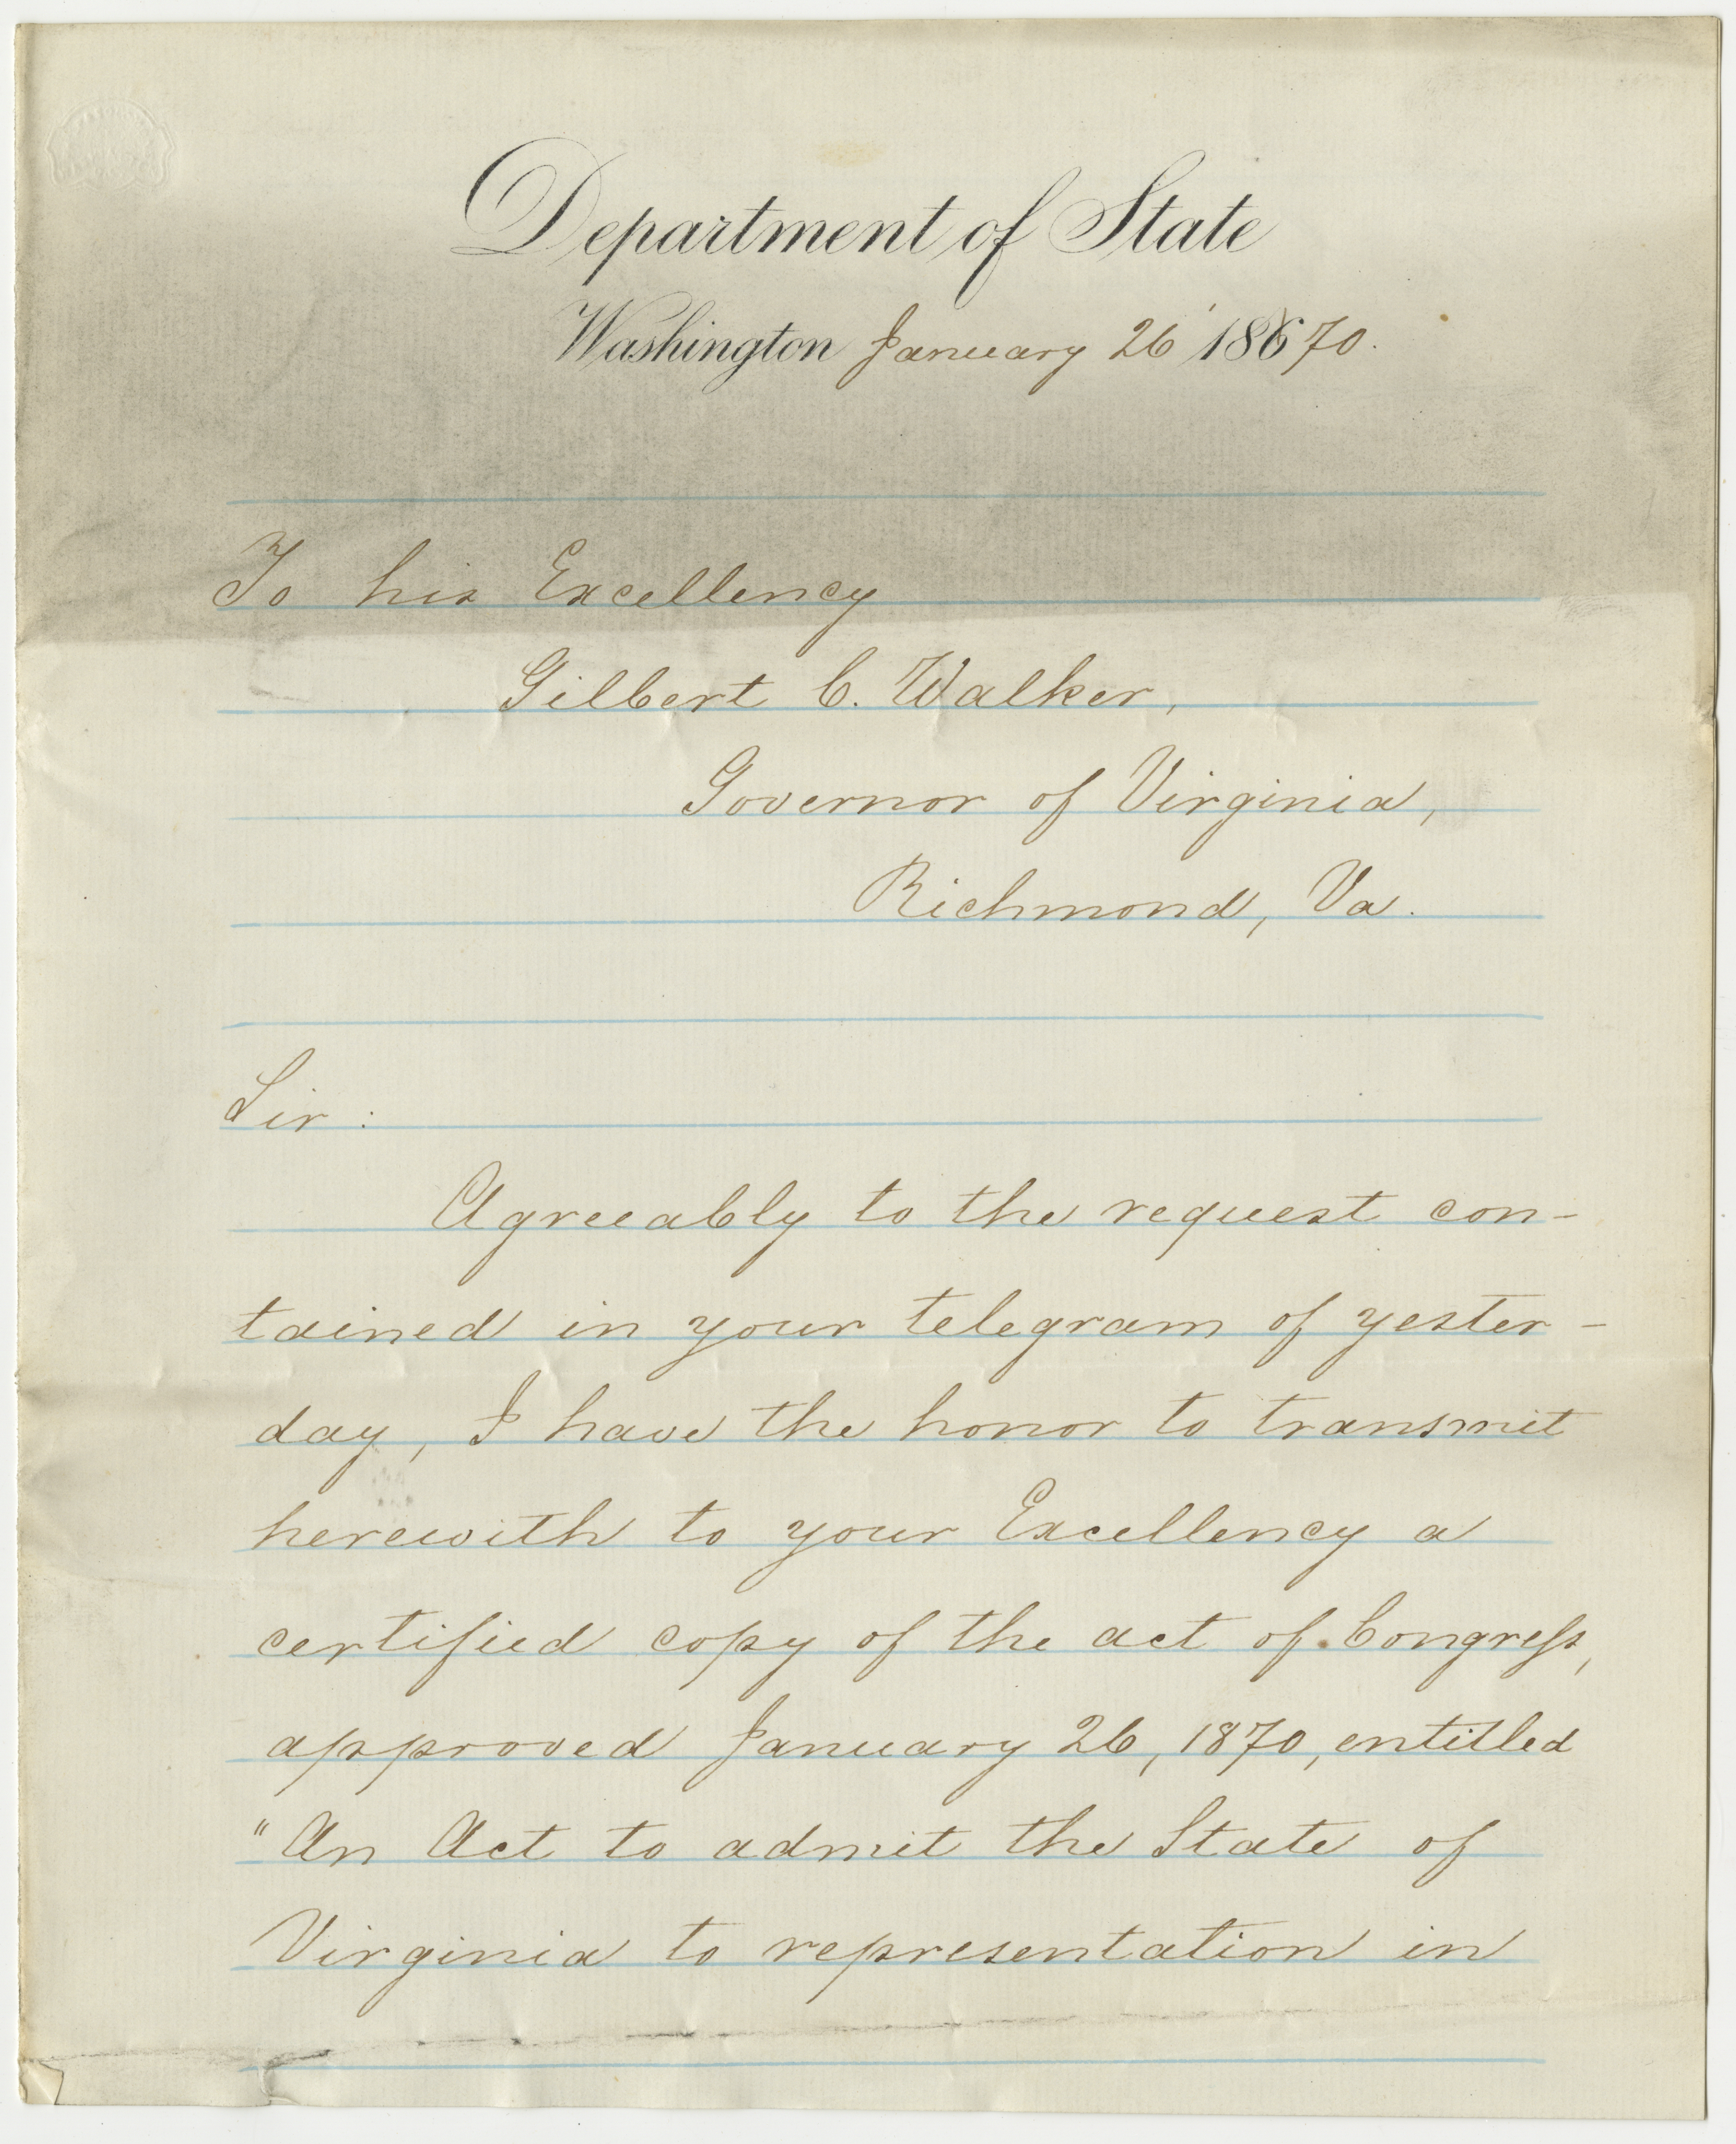 Department of State
Washington January 26 18670.
To his Excellency
Gilbert C. Walker,
Governor of Virginia,
Richmond, Va.
Sir :
Agreeably to the request con-
tained in your telegram of yester-
day, I have the honor to transmit
herewith to your Excellency a
certified copy of the act of Congress,
approved January 26, 1870, entitled
"An Act to admit the State of
Virginia to representation in